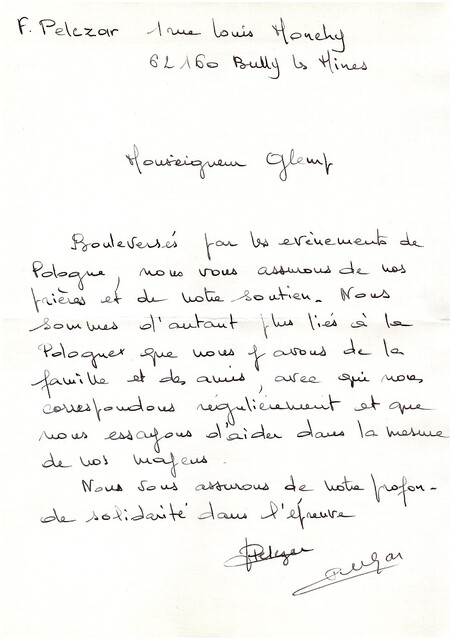 F. Pelczar 1 rue Louis Monchy
62160 Bully les Mines
Monseigneur Glemp
Bouleversés par les evènements de
Pologne, nous vous assurons de nos
prières et de notre soutien. Nous
sommes d'autant plus liés à la
Pologne que nous y avons de la
famille et des amis, avec qui nous
correspondons régulièrement et que
nous essayons d'aider dans la mesure
de nos moyens.
Nous vous assurons de notre profon-
de solidarité dans l'épreuve
Pelczar